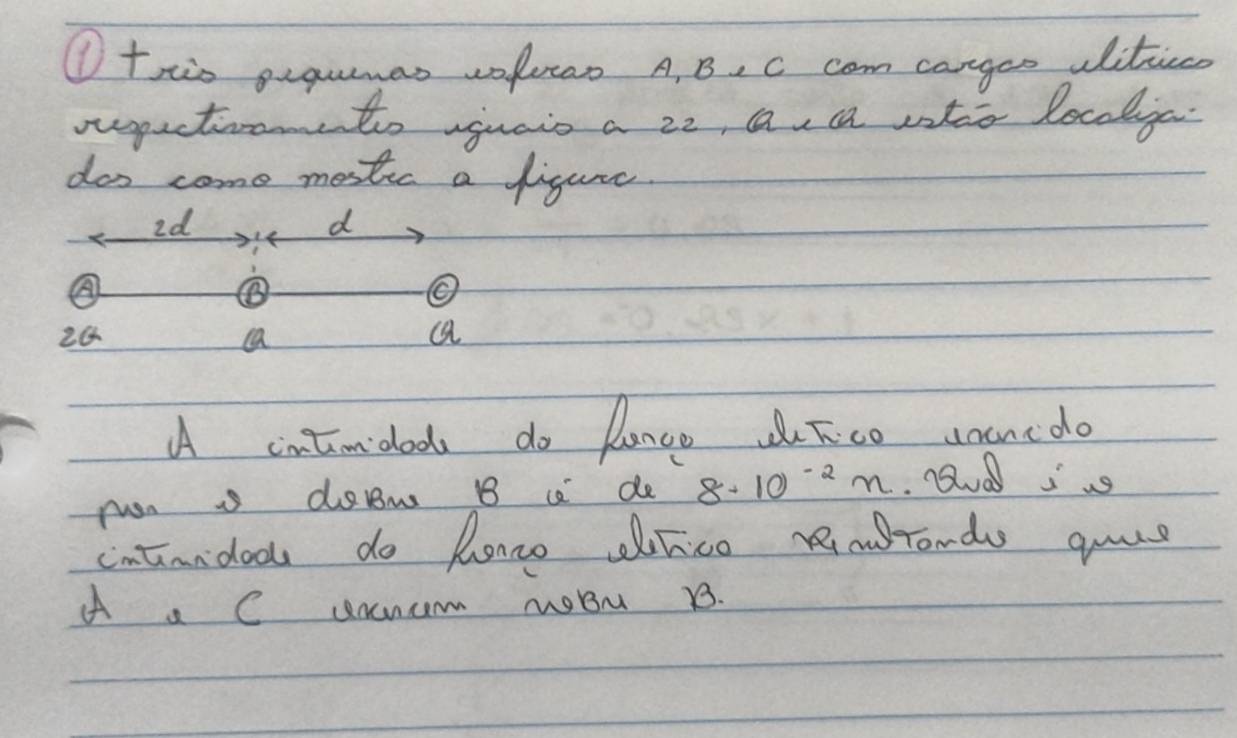 ① Três pequenas esferas A, B e C com cargas elétricas
respectivamentes iguais a 22, Q e Q estão localiza-
das como mostra a figura.
2d d
A B C
2Q Q Q
A intensidade da força elétrica exercida
por sobre B é de 8.10⁻² n. Qual é a
intensidade da força elétrica resultante que
A e C exercem sobre B.